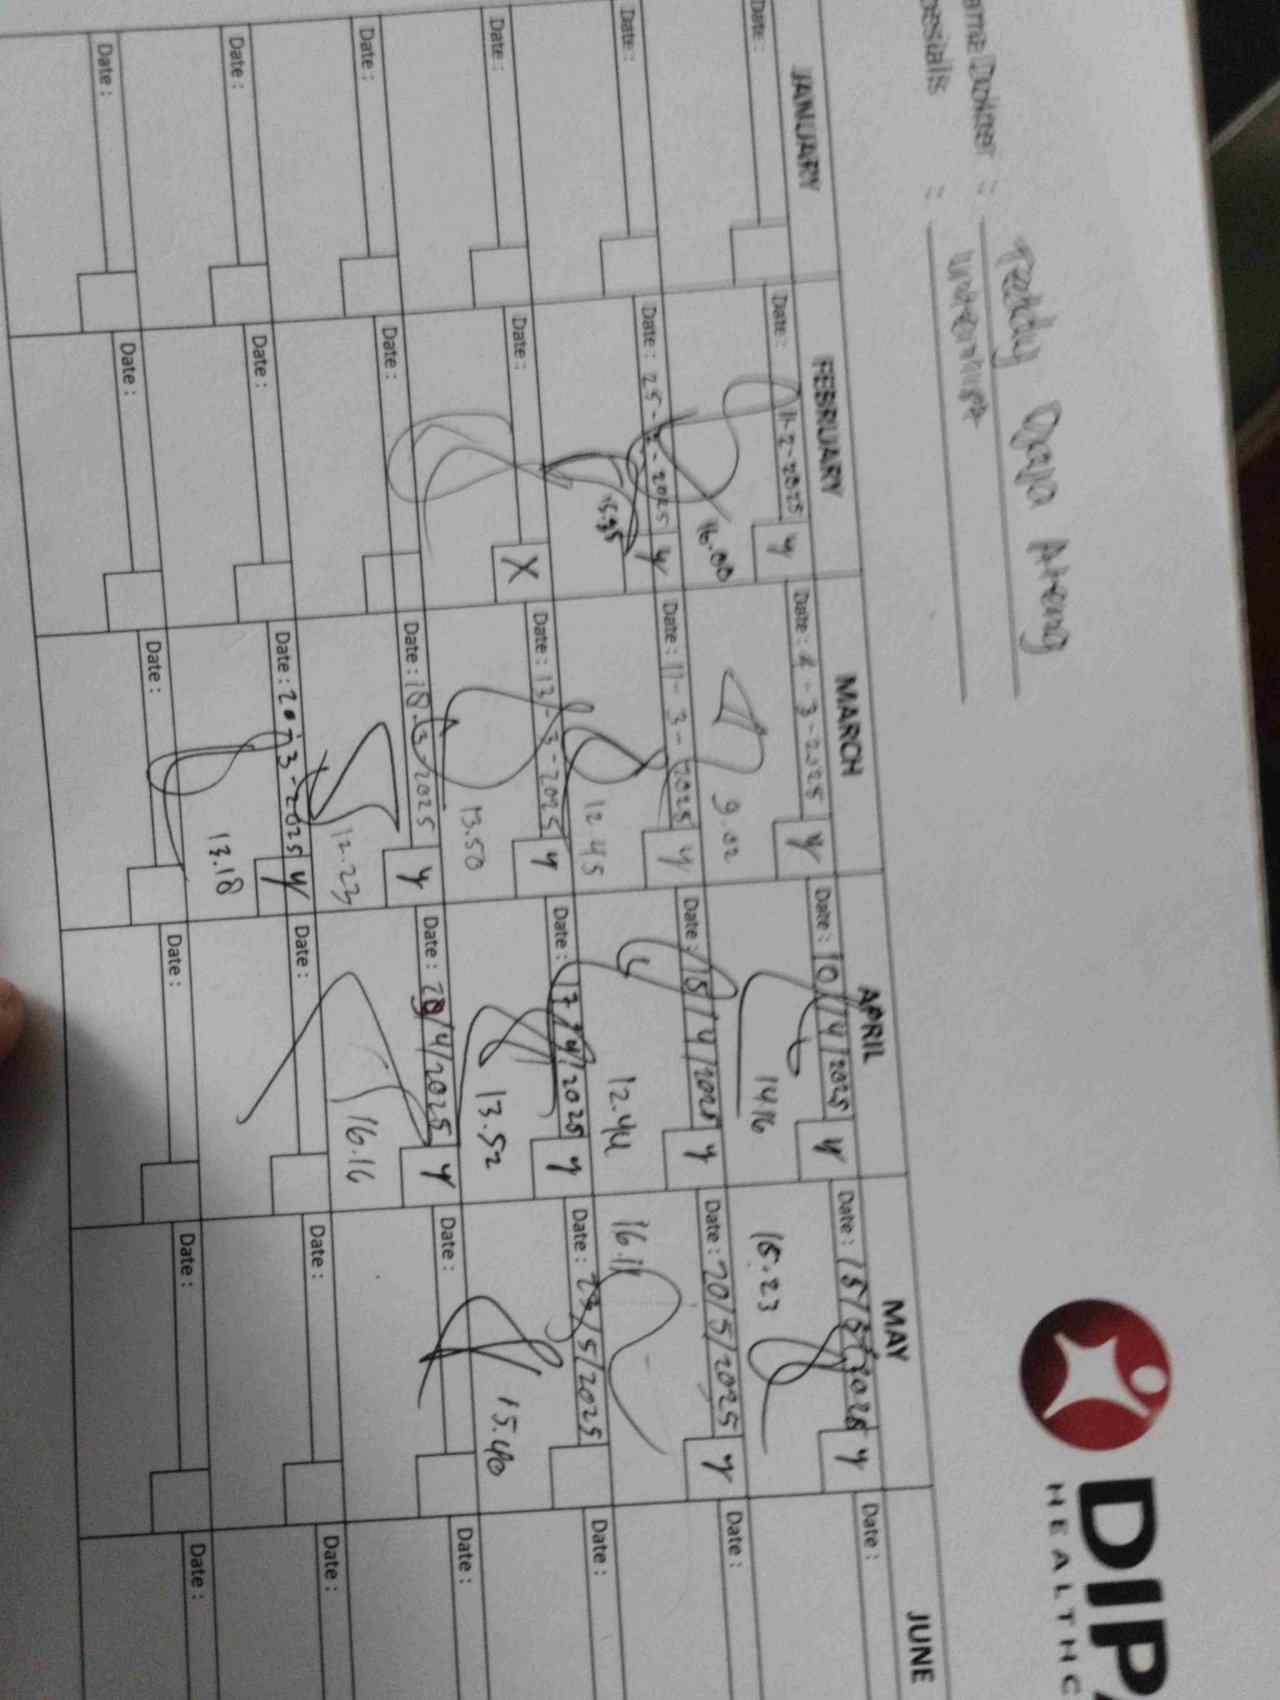 DIPA
HEALTHC
ama Dokter : Teddy
esialis :
JANUARY
FEBRUARY
MARCH
APRIL
MAY
JUNE
Date :
Date : 11-2-2025 y
16.00
Date : 4-3-2025 y
9.02
Date : 10/4/2025 y
1416
Date : 15/5/2025 y
15.23
Date :
Date :
Date : 25-2-2025 y
Date : 11-3-2025 y
12.45
Date : 15/4/2025 y
12.44
Date : 20/5/2025 y
16.11
Date :
Date :
Date : X
Date : 13-3-2025 y
13.50
Date : 17/4/2025 y
13.52
Date : 23/5/2025
15.40
Date :
Date :
Date :
Date : 18-3-2025 y
12.23
Date : /4/2025 y
16.16
Date :
Date :
Date :
Date :
Date : 20-3-2025 y
13.18
Date :
Date :
Date :
Date :
Date :
Date :
Date :
Date :
Date :